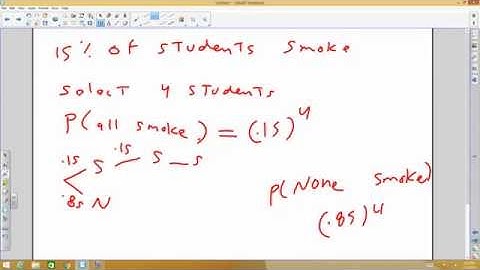 15% of students smoke
Select 4 students
P(all smoke) = (.15)^4
.15 S .15 S S
.85 N
P(None smoke)
(.85)^4